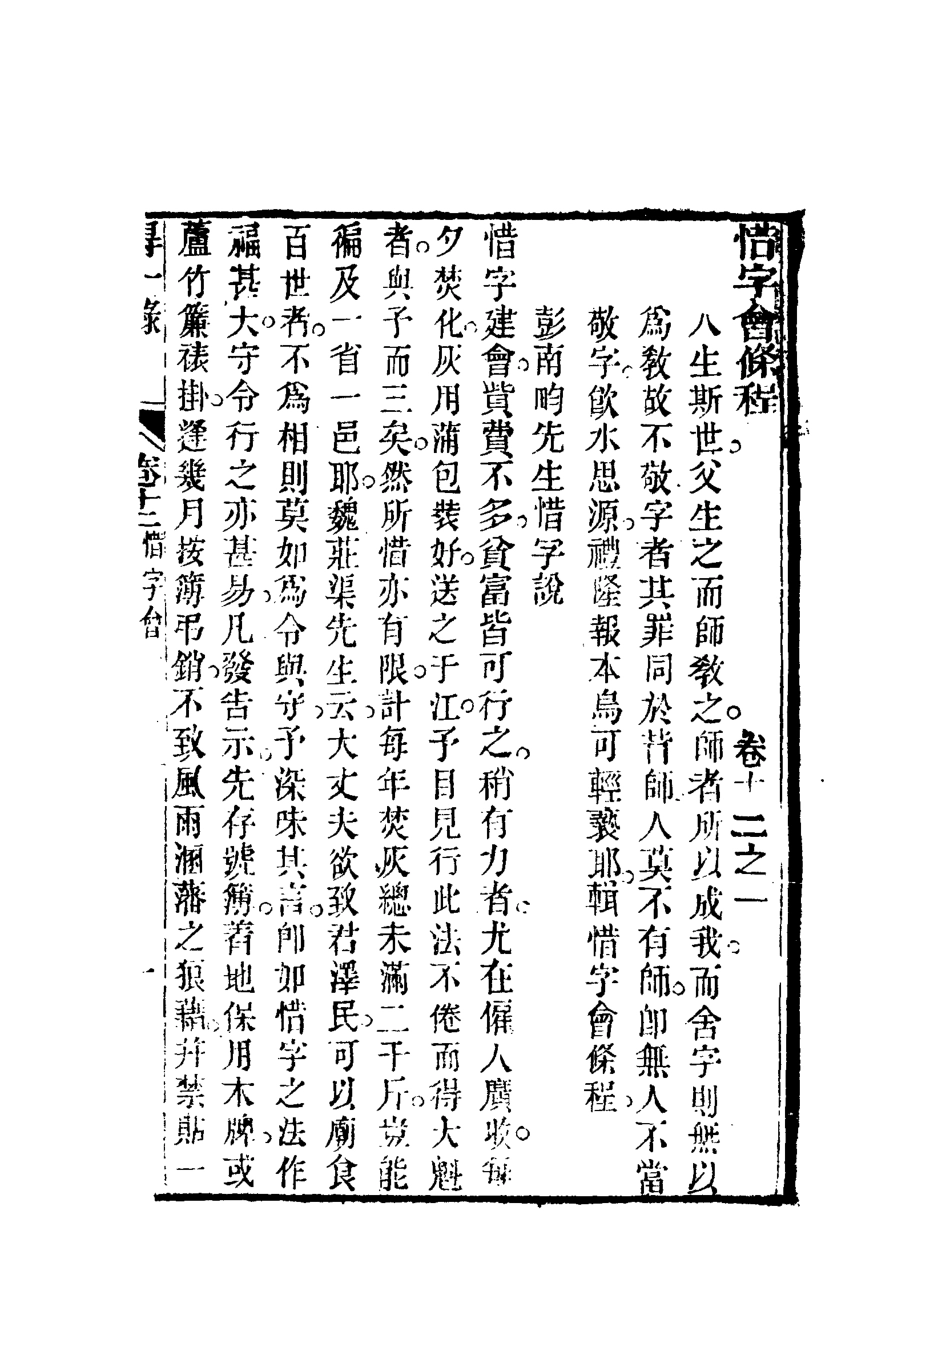 惜字會條程 卷十二之一
人生斯世父生之而師教之師者所以成我而舍字則無以
爲教故不敬字者其罪同於背師人莫不有師卽無人不當
敬字飮水思源禮隆報本烏可輕褻耶輯惜字會條程
彭南畇先生惜字說
惜字建會貲費不多貧富皆可行之稍有力者尤在僱人廣收每
夕焚化灰用蒲包裝好送之于江予目見行此法不倦而得大魁
者與予而三矣然所惜亦有限計每年焚灰總未滿二千斤豈能
徧及一省一邑耶魏莊渠先生云大丈夫欲致君澤民可以廟食
百世者不爲相則莫如爲令與守予深味其言卽如惜字之法作
福甚大守令行之亦甚易凡發告示先存號簿着地保用木牌或
蘆竹簾裱掛逢幾月按簿弔銷不致風雨溷藩之狼藉幷禁貼一
得一錄 卷十二 惜字會 一